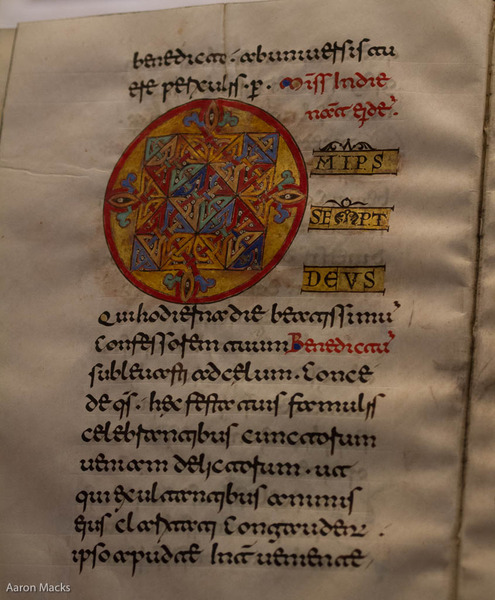 benedicat. ab universis tu
ere periculis. p. Miss in die
nat eiusde.
MIPS
SEMPT
DEVS
Qui hodierna die beatissimu
Confessorem tuum Benedictu
sublevasti ad celum. Conce
de qs. hec festa tuis famulis
celebrantibus cunctorum
veniam delictorum. ut
qui exultantibus animis
eius claritati congauden.
ipso apud te int veniente
Aaron Macks